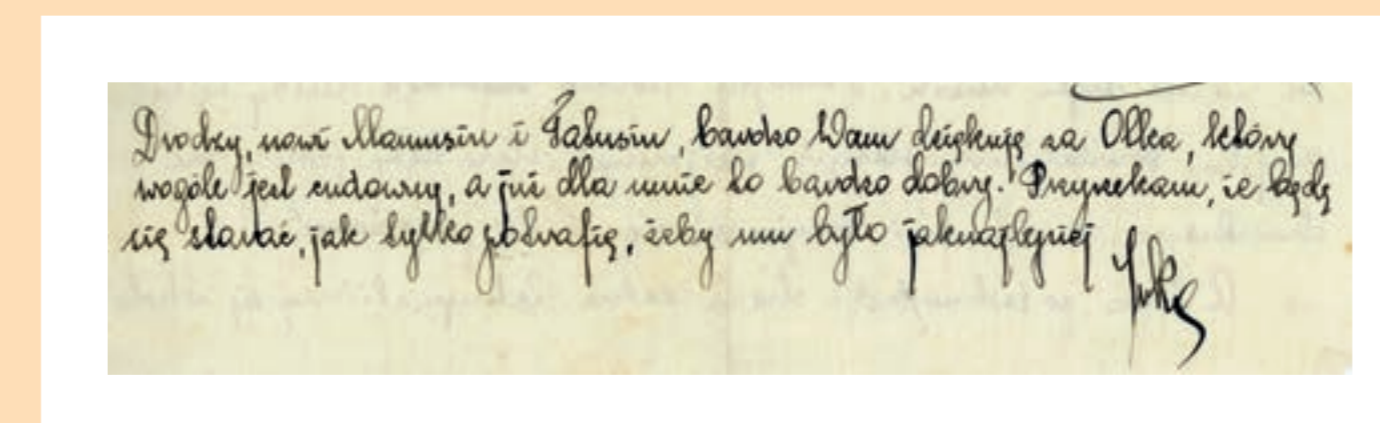 Drodzy, nowi Mamusiu i Tatusiu, bardzo Wam dziękuję za Olka, który
wogóle jest cudowny, a już dla mnie to bardzo dobry. Przyrzekam, że będę
się starać, jak tylko potrafię, żeby mu było jaknajlepiej